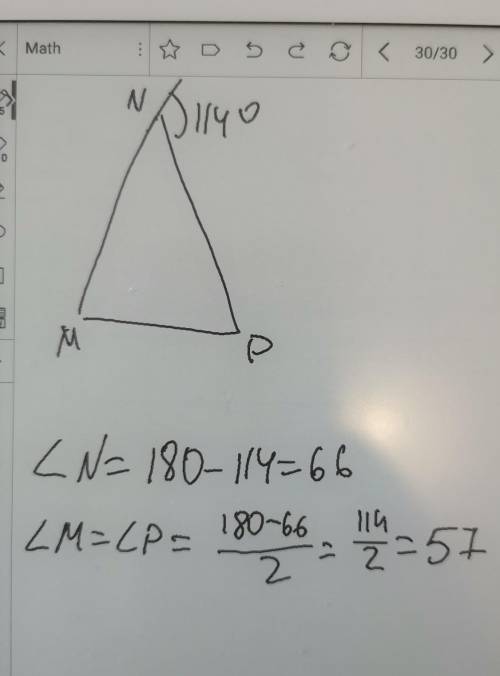 Math 30/30
N 114°
M P
∠N=180-114=66
∠M=∠P= (180-66)/2 = 114/2 = 57